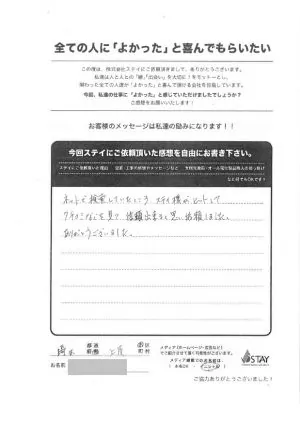 全ての人に「よかった」と喜んでもらいたい
この度は、株式会社ステイにご依頼頂きまして、ありがとうございます。
私達は人と人との「絆」「出会い」を大切に！をモットーとし、
関わった全ての人達が「よかった」と喜んで頂ける会社を目指しています。
今回、私達の仕事に「よかった」と感じていただけましたでしょうか？
ご感想をお願いいたします！
お客様のメッセージは私達の励みになります！！
今回ステイにご依頼頂いた感想を自由にお書き下さい。
ステイにご依頼頂いた理由
なんでもOKです！
ネットで検索していたところ ステイ様がヒットして
クチコミなどを見て 依頼出来ると思い依頼しました。
ありがとうございました。
埼玉
都道府県
上尾
市区町村
メディア（ホームページ・広告など）
でご紹介させて頂く可能性がございます。
メディア掲載でのお名前は
（本名OK・イニシャル）
STAY
お名前
ご協力ありがとうございました！